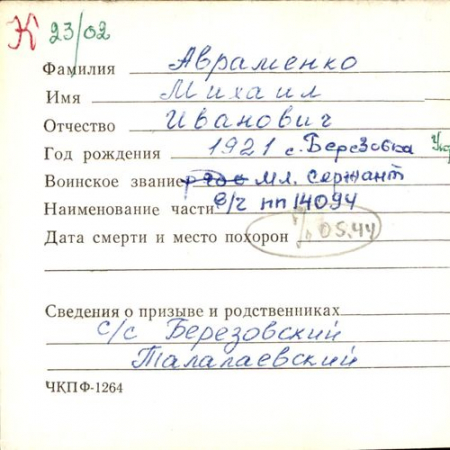 К 23/02
Фамилия Авраменко
Имя Михаил
Отчество Иванович
Год рождения 1921 с. Березовка Укр
Воинское звание мл. сержант
Наименование части в/ч пп 14094
Дата смерти и место похорон 05.44
Сведения о призыве и родственниках
с/с Березовский
Талалаевский
ЧКПФ-1264